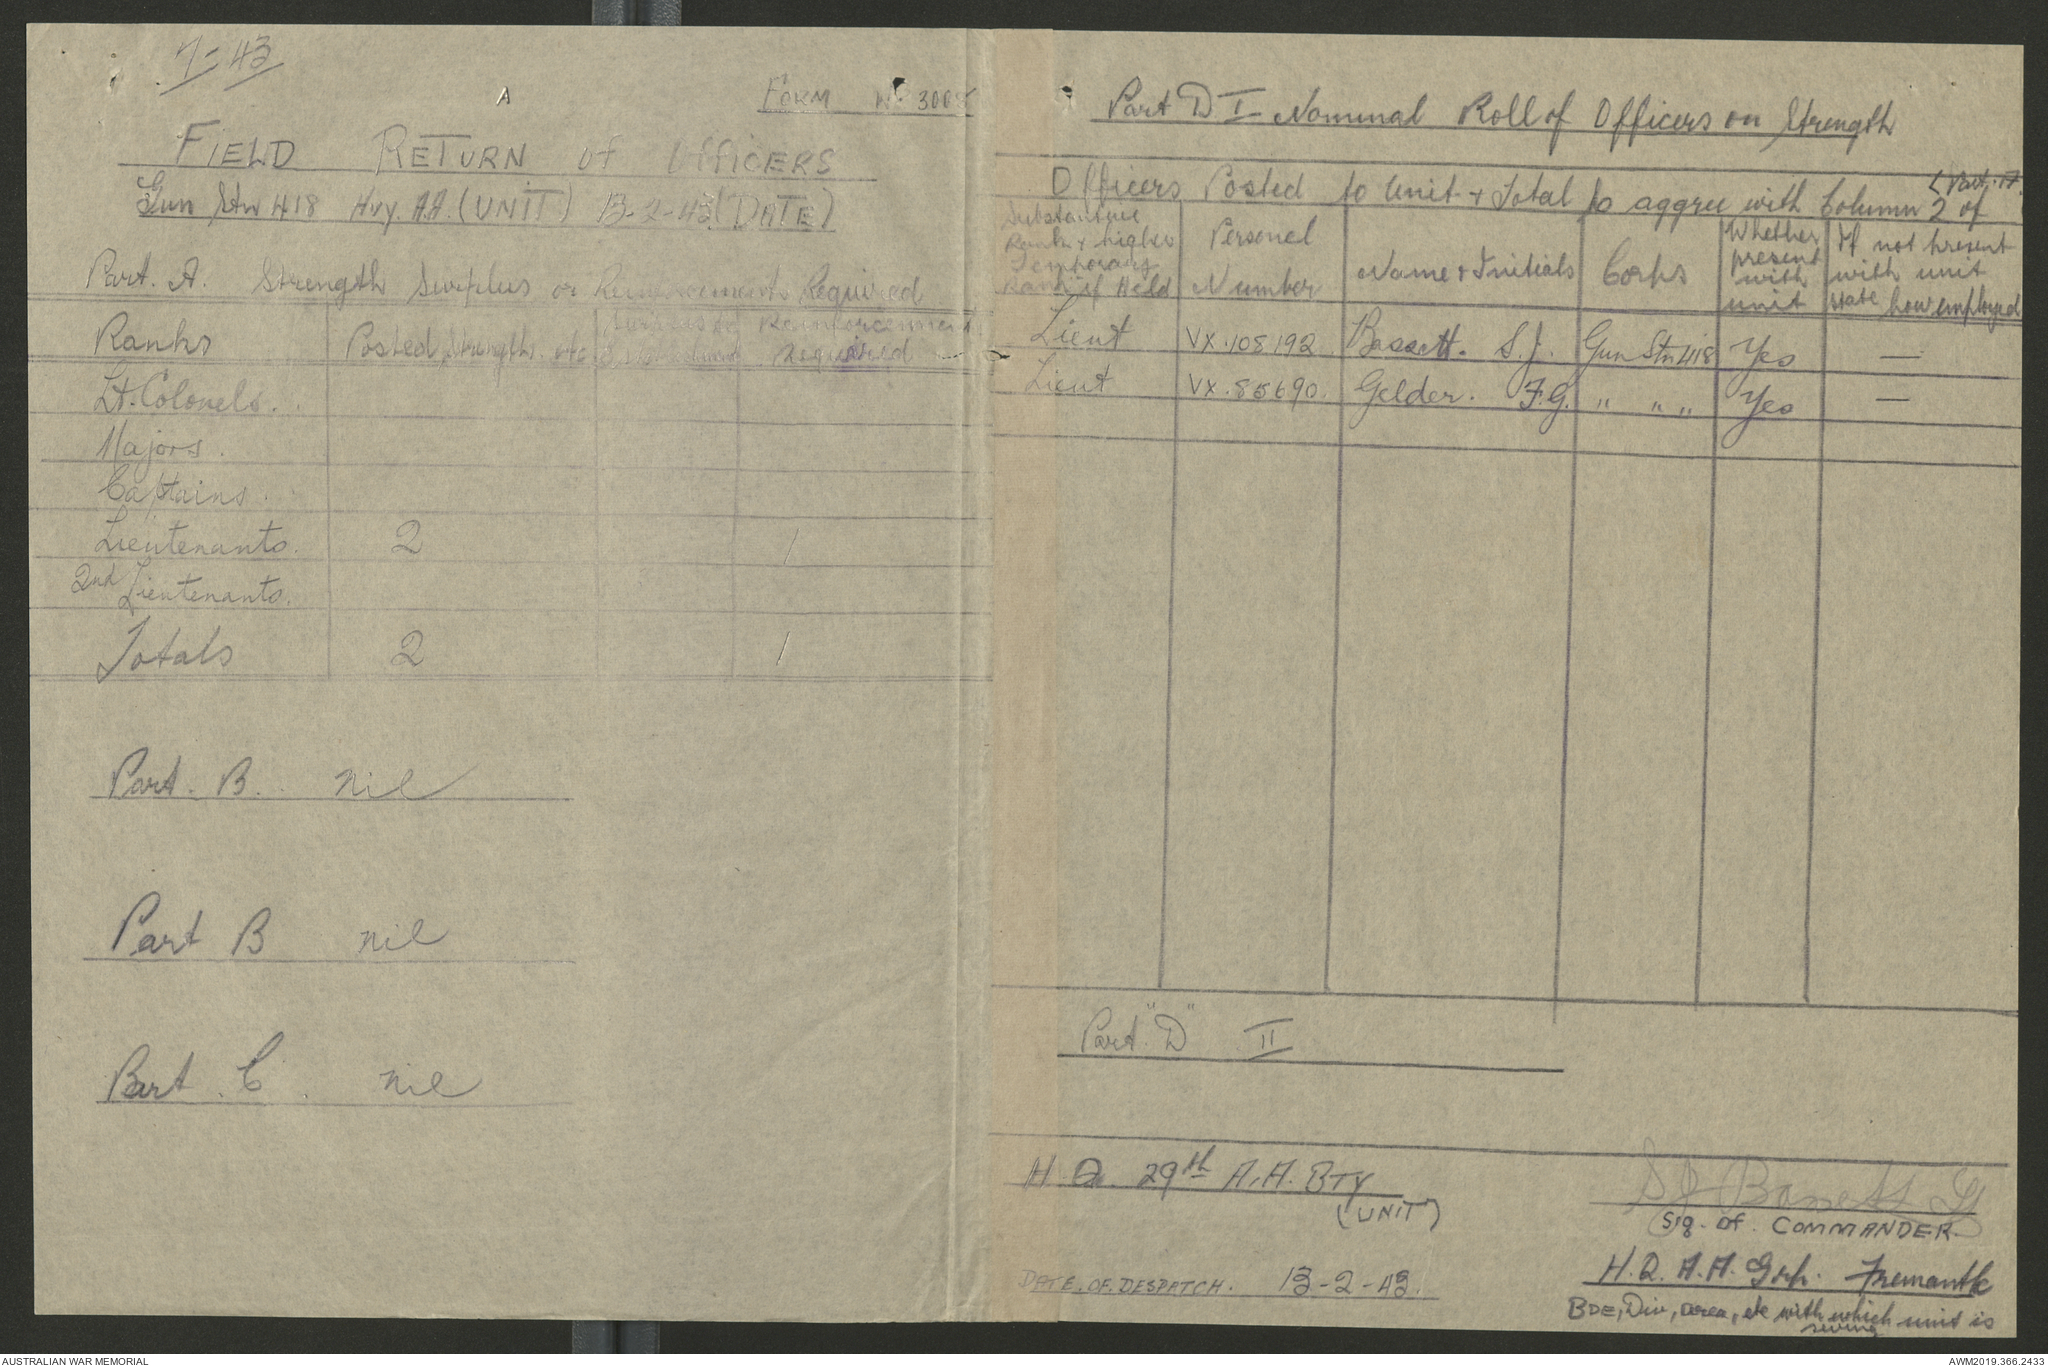 7-43
A
FORM No 3008
FIELD RETURN of OFFICERS
Gun Stn 418 Hvy. A.A. (UNIT) 13-2-43 (DATE)
Part. A. Strength Surplus or Reinforcements Required
Ranks Posted Strength Reinforcement
required
Lt. Colonels.
Majors.
Captains.
Lieutenants. 2 1
2nd Lieutenants.
Totals 2 1
Part. B. nil
Part B nil
Part. C. nil
Part D I Nominal Roll of Officers on Strength
Officers Posted to Unit + Total to aggree with Column 2 of
Part. A.
Substantive Rank + higher Temporary Rank if Held
Personel Number
Name + Initials
Corps
Whether present with unit
If not present with unit state how employed
Lieut VX.108192 Bassett. S.J. Gun Stn 418 Yes —
Lieut VX.85690. Gelder. F.G. " " " Yes —
Part "D" II
H.Q. 29th A.A. BTY
(UNIT)
DATE. OF. DESPATCH. 13-2-43.
S J Bassett Lt
Sig. of. COMMANDER.
H.Q. A.A. Grp. Fremantle
BDE, Div, area, etc with which unit is
serving
AUSTRALIAN WAR MEMORIAL
AWM2019.366.2433